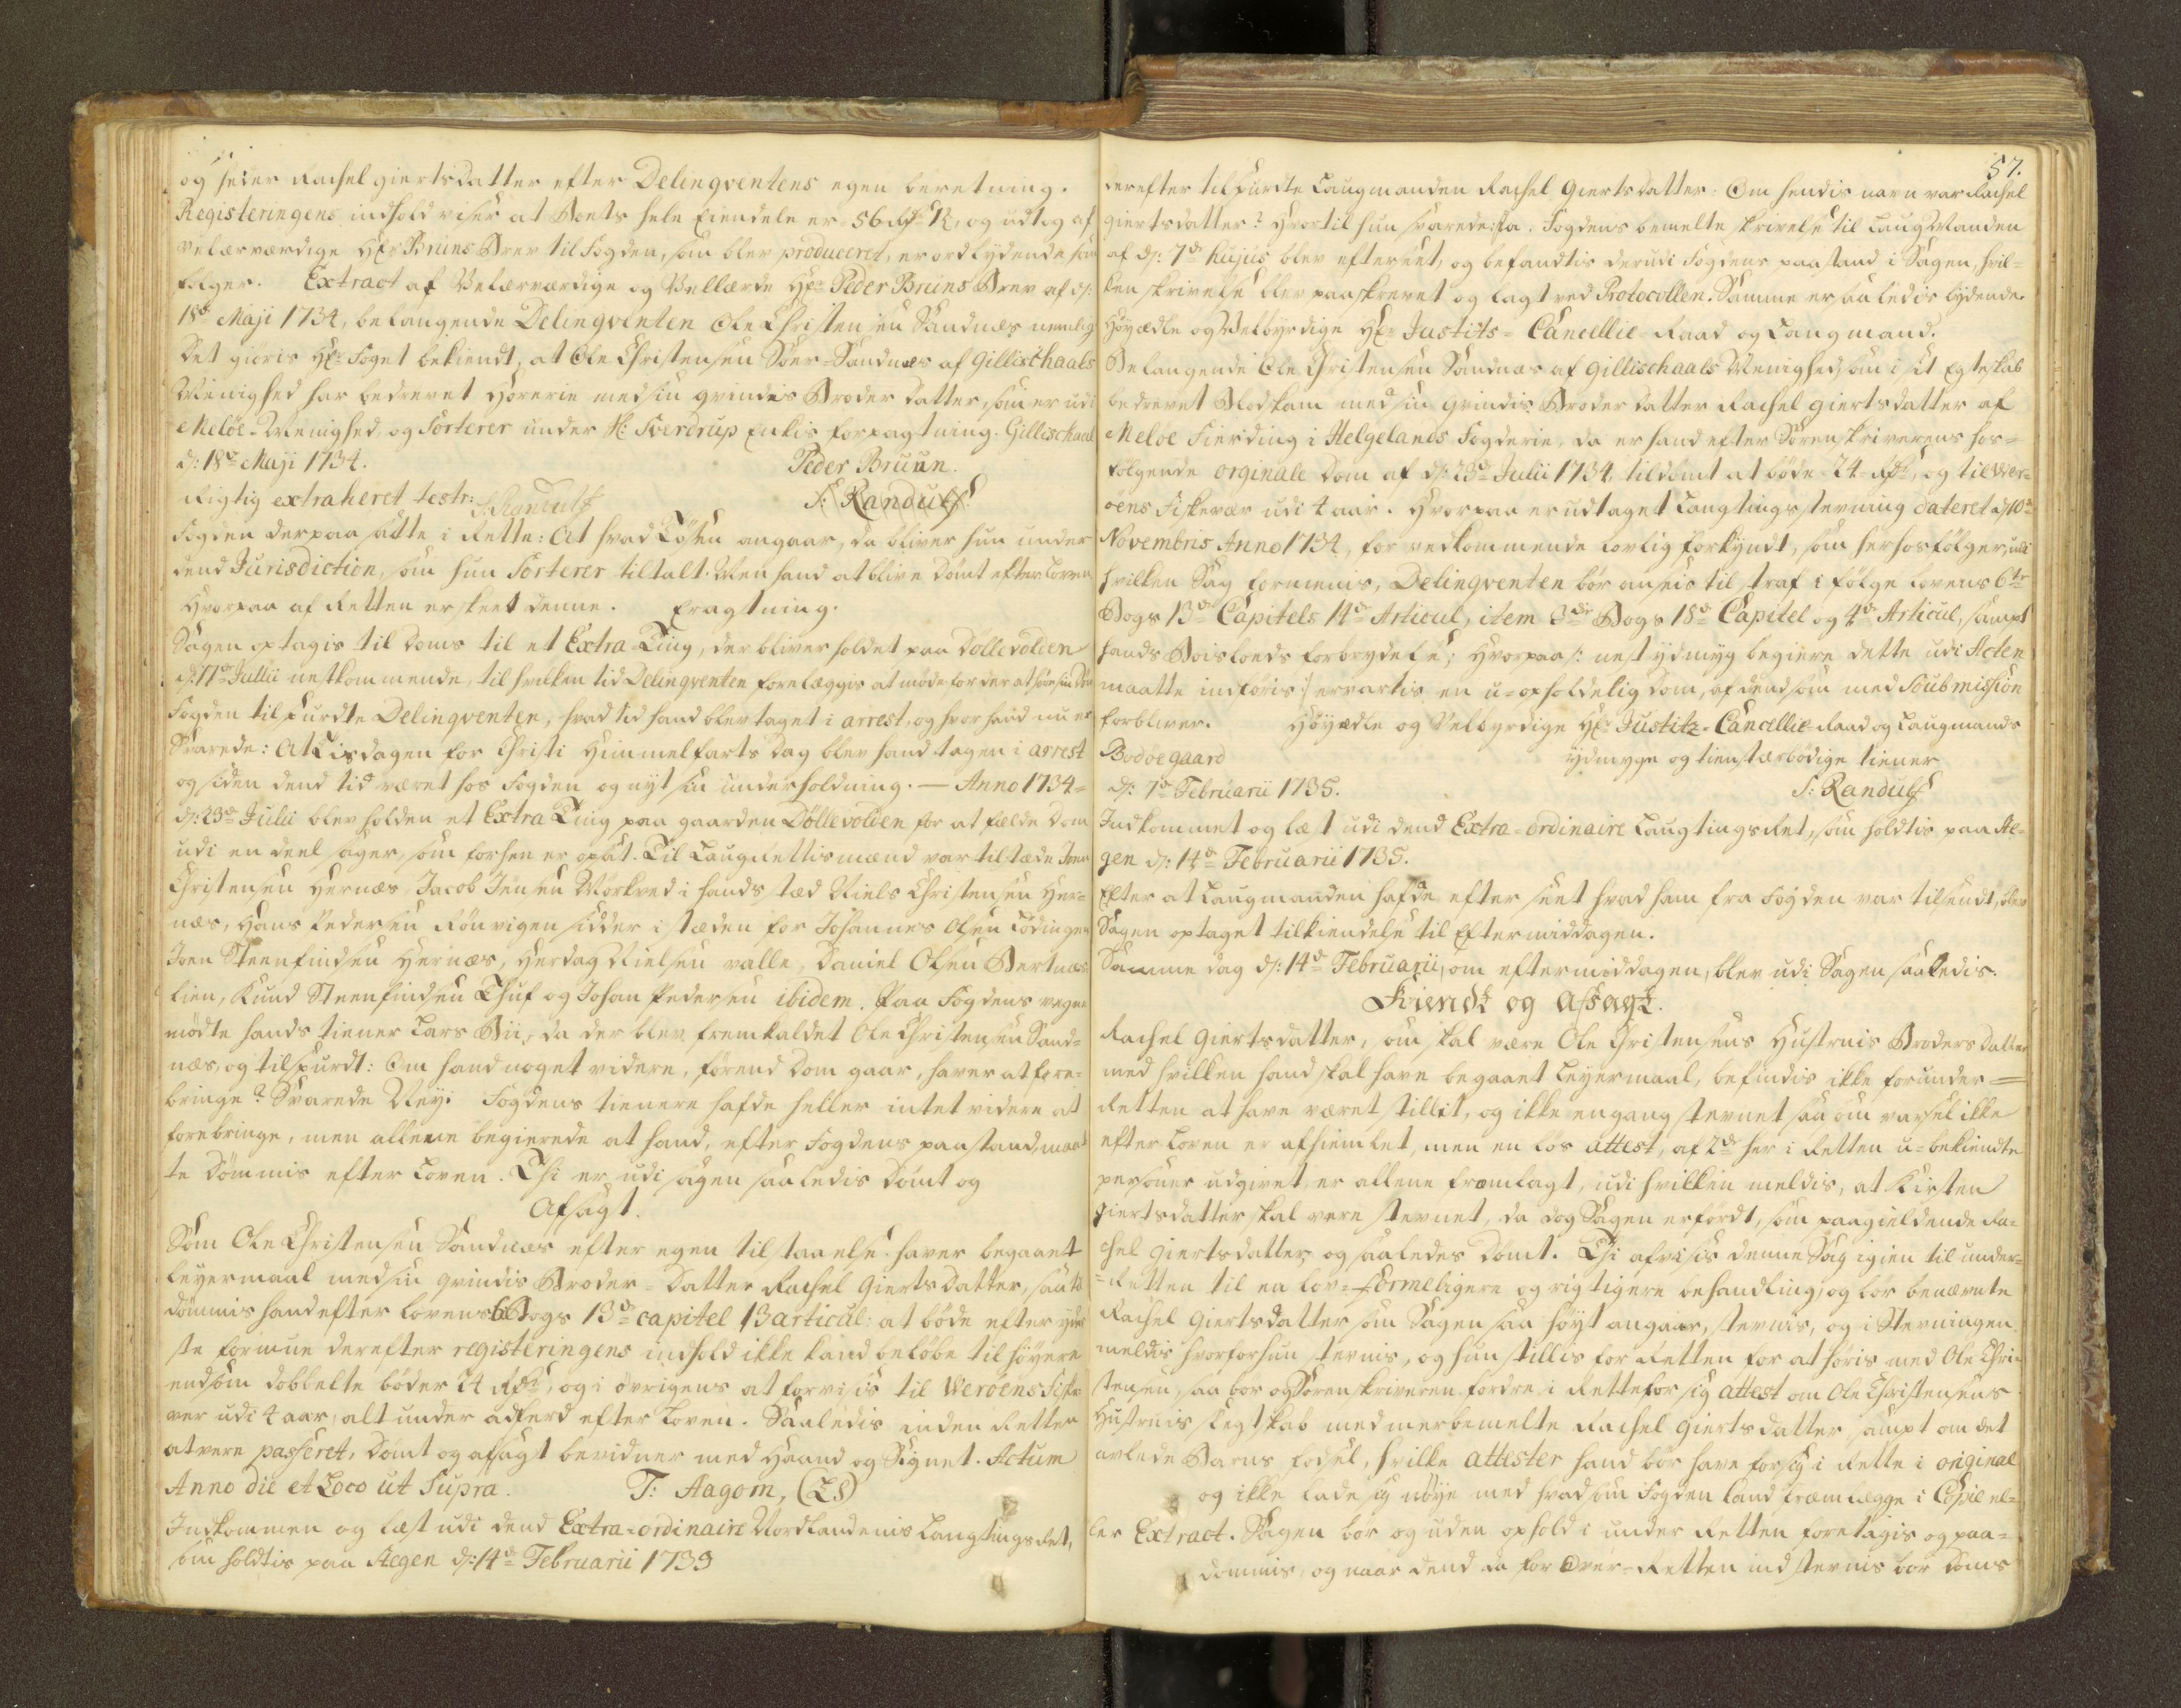 og heder Rachel giertsdatter efter Delinqventens egen beretning.
Registeringens indhold viser at Boets hele Eiendele er 56 og udtog af
velærværdige Hr Bruns Brev til Fogden, som blev produceret, er ordlydende som
følger. Extract af Velærværdige og Vellærde Hr Peder Bruns Brev af d:
18de Maji 1734, belangende Delinqventen Ole Christensen Sandnæs nemlig
Det gioris Hr Foget bekiendt, at Ole Christensen Söer-Sandnæs af Gillischaals
Menighed har bedrevet Horerie med sin qvindes Broder datter, som er udi
Meløe-Menighed og Sorterer under Sverdrup Enkis forpagtning. Gillischaal
d: 18de Maji 1734. Peder Bruun.
Rigtig extraheret testr: S: Randulff S: Randulff
Fogden derpaa satte i Rette: At hvad Tösen angaar, da bliver hun under
dend Jurisdiction, som hun Sorterer tiltalt. Men hand at blive dömt efter Loven
Hvorpaa af Retten er skeet denne. Eragtning.
Sagen optagis til Doms til et Extra-Ting, der bliver holdet paa Dollevolden
d: 17de Julii nestkommende, til hvilken tid Delinqventen forelæggis at møde for der at höre sin Dom
Fogden tilspurdte Delinqventen, hvad tid hand blev taget i arrest, og hvor hand nu er
Svarede: At Tisdagen for Christi Himmelfarts Dag blev hand tagen i arrest
og siden dend tid været hos Fogden og nyt sin underholdning. — Anno 1734=
d: 23de Julii blev holden et Extra Ting paa gaarden Döllevolden for at fælde Dom
udi en deel sager, som forhen er opsat. Til Laug Rettismænd var tiltæde Joen
Christensen Hernæs, Jacob Jensen Mörkved i hands stæd Niels Christensen Her=
næs, Hans Pedersen Rönvigen sidder i stæden for Johannes Olsen Lödingen
Joen Steenfindsen Hernæs, Herdag Nielsen valle, Daniel Olsen Bertnæs
lien, Knud Steenfindsen Thuf og Johan Pedersen ibidem. Paa Fogdens vegne
mödte hands tiener Lars Bii, da der blev fremkaldet Ole Christensen Sand=
næs, og tilspurdt: Om hand noget videre, förend Dom gaar, haver at fore=
bringe? Svarede Ney: Fogdens tienere hafde heller intet videre at
forebringe, men allene begierede at hand, efter Fogdens paastand, maat
te dömmis efter Loven. Thi er udi sagen saaledis dömt og
Afsagt.
Som Ole Christensen Sandnæs efter egen tilstaaelse haver begaaet
leyermaal med sin qvindis Broder-Datter Rachel Gierts Datter, saa
dömmis hand efter Lovens 6te Bogs 13de capitel 13 articul: at böde efter yder
ste formue derefter registeringens indhold ikke kand belöbe til höyere
end som dobbelte böder 24 Rdr, og i övrigens at forvisis til Weröens Fiske
ver udi 4 aar, alt under adferd efter Loven. Saaledis inden Retten
at vere passeret, dömt og afsagt bevidner med Haand og Signet. Actum
Anno die et Loco ut Supra. T: Aagom, (LS)
Indkommen og læst udi dend Extra-ordinaire Nordlandenis Langtings Ret,
som holdtis paa Aegen d: 14de Februarii 1739
57.
derefter tilspurdte Laugmanden Rachel Gierts datter: Om hendis navn var Rachel
giertsdatter? Hvortil hun svarede: Ja. Fogdens bemelte skrivelse til Laug Manden
af d: 7de hujus blev efterseet, og befandtis derudi Fogdens paastand i Sagen, hvil=
ken skrivelse blev paaskrevet og lagt ved Protocollen. Samme er saaledis lydende.
Höyædle og Velbyrdige Hr Justits-Cancellie-Raad og Laugmand.
Belangende Ole Christensen Sandnæs af Gillischaals Menighed, som i sit Egteskab
bedrevet Blodskam med sin qvindis Broder datter Rachel giertsdatter af
Meløe Fierding i Helgelands Fogderie, da er hand efter Sorenskriverens hos=
følgende orginale Dom af d: 23de Julii 1734, tildömt at böde 24 Rdr, og til Wer=
öens Fiskevær udi 4 aar. Hvorpaa er udtaget Laugtingsstevning dateret d: 10de
Novembris Anno 1734, for vedkommende lovlig forkyndt, som herhos følger, udi
hvilken Sag formenis, Delinqventen bör ansees til straf i følge Lovens 6te
Bogs 13de Capitels 14de Articul, item 3die Bogs 18de Capitel og 4de Articul, sampt
hands Boisloeds forbrydelse; Hvorpaa /: nest ydmyg begiere dette udi Acten
maatte indføris :/ ervartis en u-opholdelig Dom, af dend som med Soubmission
forbliver. Höyædle og Velbyrdige Hr Justitz-Cancellie-Raad og Laugmands
Bodøegaard ydmyge og tienstærbödige tiener
d: 7de Februarii 1735. S: Randulff
Indkommet og læst udi dend Extra-ordinaire Laugtings Ret, som holdtis paa Ae=
gen d: 14de Februarii 1735.
Efter at Laugmanden hafde efter seet hvad ham fra Fogden var tilsendt, blev
Sagen optaget til kiendelse til Eftermiddagen.
Samme dag d: 14de Februarii, om eftermiddagen, blev udi Sagen saaledis.
Kiendt og Afsagt.
Rachel Giertsdatter, som skal være Ole Christensens Hustruis Broders datter
med hvilken hand skal have begaaet Leyermaal, befindis ikke for under=
Retten at have været stillet, og ikke engang stevnet saa som varsel ikke
efter Loven er afhiemlet, men en lös attest, af 2de her i Retten u-bekiendte
personer udgivet, er allene fremlagt, udi hvilken meldis, at Kirsten
giertsdatter skal vere stevnet, da dog Sagen er fördt, som paagieldende Ra=
chel Giertsdatter og saaledes dömt. Thi afvisis denne Sag igien til under=
=Retten til en lov-formeligere og rigtigere behandling, og bör benævnte
Rachel Giertsdatter som Sagen saa höyt angaar, stevnis, og i Stevningen
meldis hvorfor hun stevnis, og hun stillis for Retten for at höris med Ole Chri=
stensen, saa bör og Sorenskriveren fordre i Rette for sig attest om Ole Christensens
Hustruis slegtskab med merbemelte Rachel Giertsdatter sampt om det
avlede Barns födsel, hvilke attester hand bör have for sig i Rette i original
og ikke lade sig nöye med hvad som Fogden kand fremlægge i Copie el=
ler Extract. Sagen bör og uden ophold i under Retten foretagis og paa=
dömmis, og naar dend da for Over-Retten indstevnis bör Doms